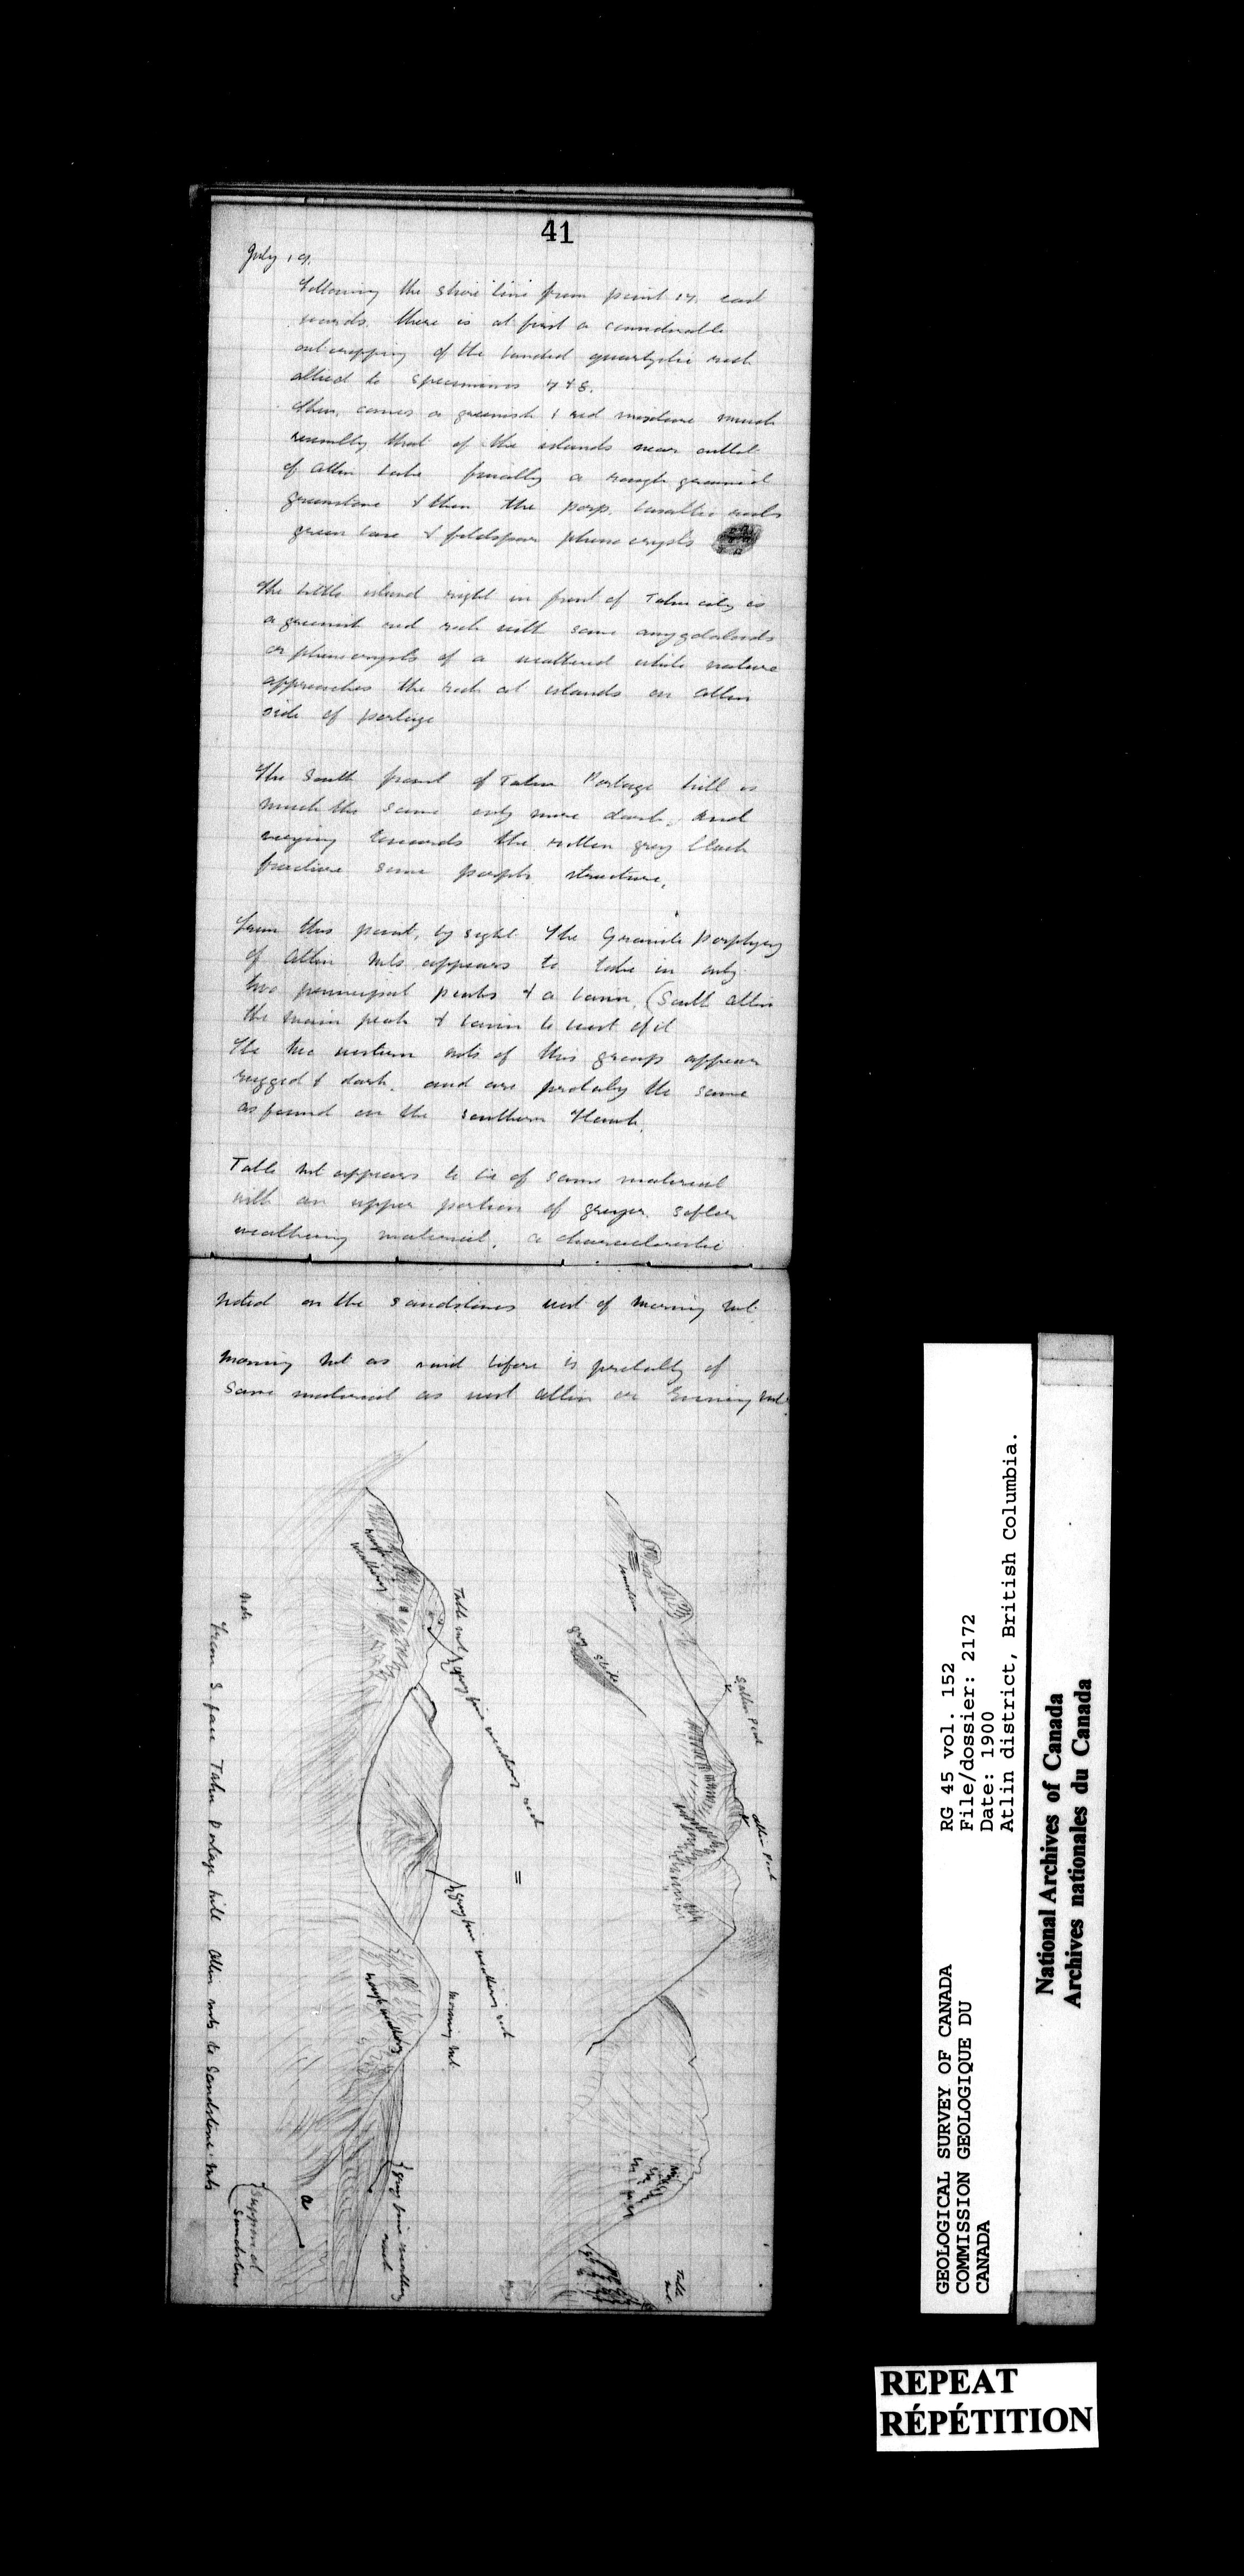 41
July 19.
Following the shore line from point 17. east
wards. there is at first a considerable
outcropping of the banded quartzitic rock
allied to specimens 7 & 8.
Then, comes a greenish & red mixture much
that of the islands near outlet
of Atlin Lake finally a rough grained
greenstone & then the porp. basaltic rocks
green base & feldspar phenocrysts
The little island right in front of Taku city is
a greenish red rock with some amygdaloids
or phenocrysts of a weathered white nature
approaches the rock at islands on Atlin
side of portage
The South front of Taku Portage hill is
much the same only more dark, and
verging towards the rotten grey black
fracture some porph. structure.
From this point, by sight the Granite porphyry
of Atlin Mts appears to take in only
two principal peaks & a basin (South Atlin
the main peak & basin to west of it
The two western mts of this group appear
rugged & dark. and are probably the same
as found on the southern flank.
Table Mt appears to be of same material
with an upper portion of greyer. softer
weathering material. a characteristic
noted on the sandstones west of Morning Mt.
Morning Mt as said before is probably of
same material as west Atlin or Evening Mt.
limestone
grey slide
S. Atlin Peak
Atlin Peak
Table Mt
rough weathering
Table Mt grey fine weathering rock
=
grey fine weathering rock
rough weathering
Morning Mt.
grey fine weathering rock
a
Supposed Sandstone
Note
From S. face Taku Portage hill Atlin Mts to Sandstone Mts
GEOLOGICAL SURVEY OF CANADA
COMMISSION GEOLOGIQUE DU
CANADA
RG 45 vol. 152
File/dossier: 2172
Date: 1900
Atlin district, British Columbia.
National Archives of Canada
Archives nationales du Canada
REPEAT
RÉPÉTITION